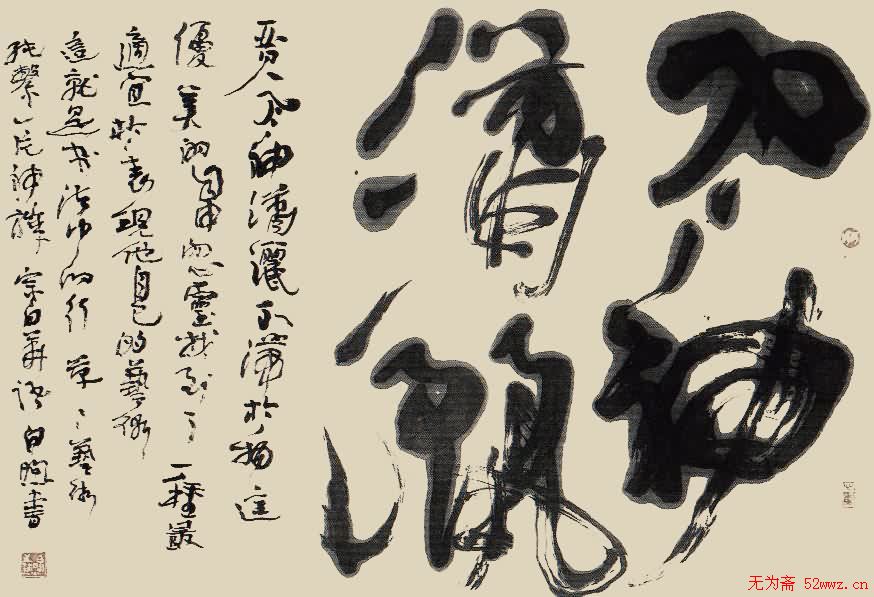 风神
瀟灑
晋人风神瀟灑不滯於物這
優美的自由心靈找到了一種最
適宜於表現他自己的藝術
這就是书法中的行草々藝術
純繫一片神 宗白華語 白 書
无为斋 52wwz.cn